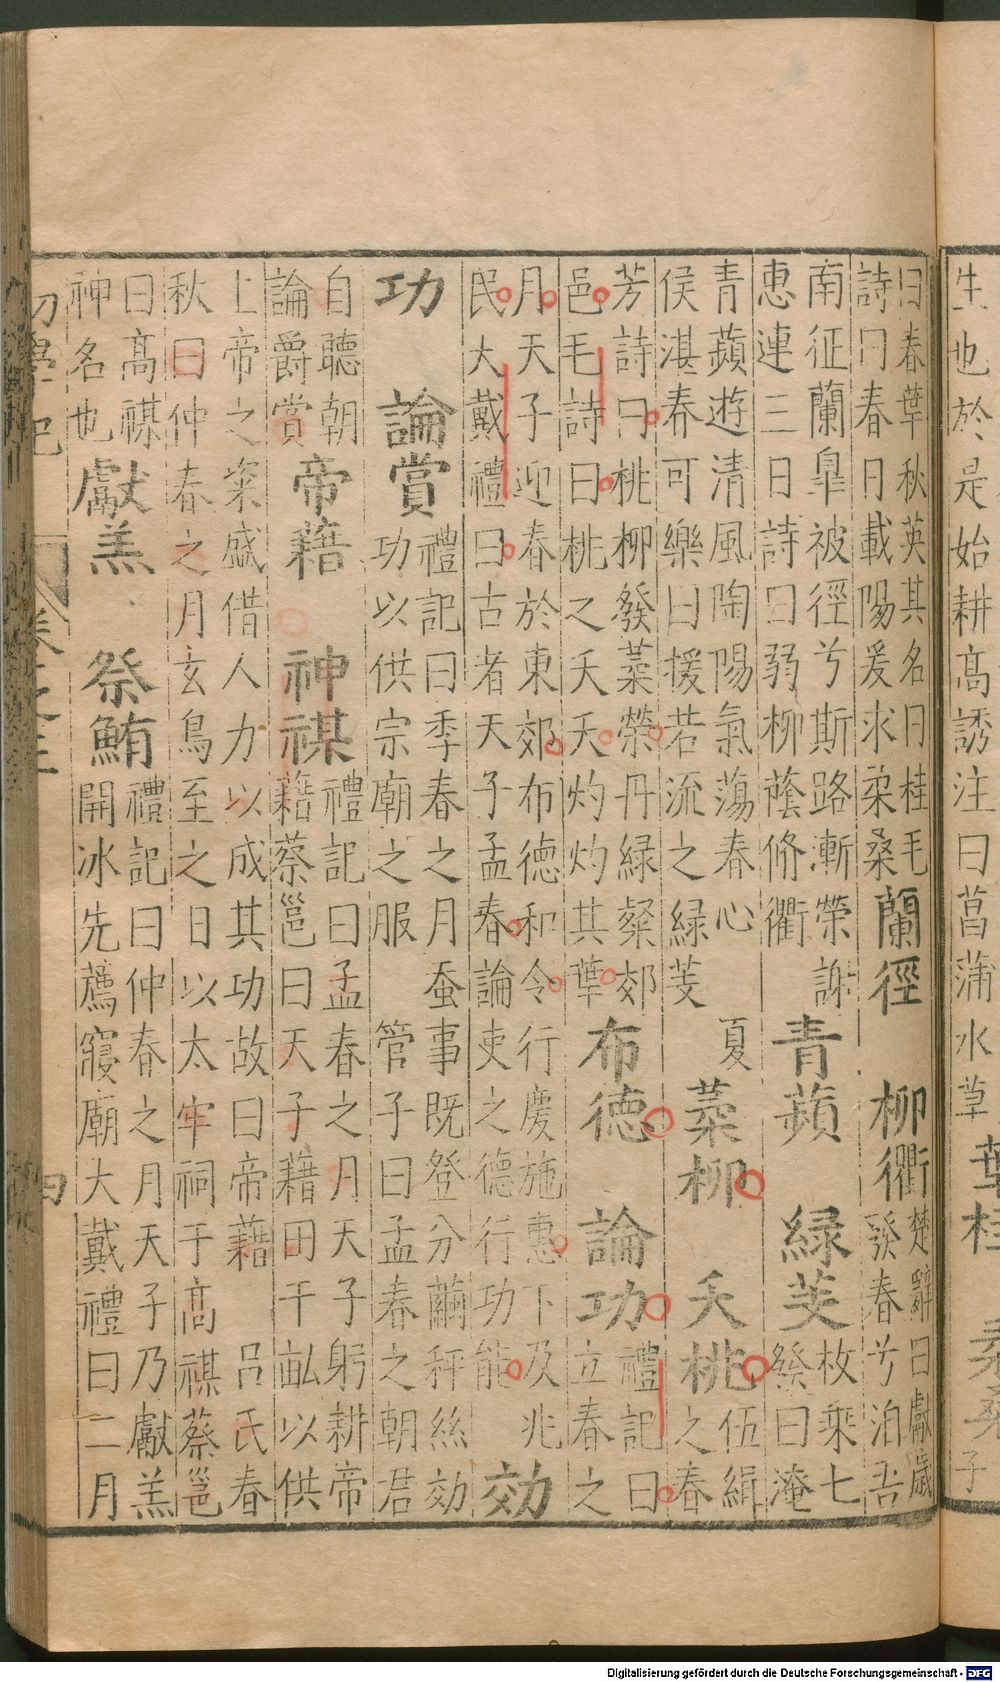 生也於是始耕高誘注曰菖蒲水草
葉桂 柔桑
子
曰春葉秋英其名曰桂毛
詩曰春日載陽爰求柔桑
蘭徑 柳衢
楚辭曰獻歲
發春兮泊吾
南征蘭皐被徑兮斯路漸榮謝
惠連三日詩曰弱柳蔭脩衢
青蘋 緑芰
枚乘七
發曰淹
青蘋遊清風陶陽氣蕩春心 夏
侯湛春可樂曰援若流之緑芰
菜柳 夭桃
伍緝
之春
芳詩曰桃柳發菜榮丹緑粲郊
邑毛詩曰桃之夭夭灼灼其葉
布德 論功
禮記曰
立春之
月天子迎春於東郊布德和令行慶施惠下及兆
民大戴禮曰古者天子孟春論吏之德行功能
効
功 論賞
禮記曰季春之月蚕事既登分繭秤絲効
功以供宗廟之服 管子曰孟春之朝君
自聽朝
論爵賞
帝藉 神禖
禮記曰孟春之月天子躬耕帝
藉蔡邕曰天子藉田千畝以供
上帝之粢盛借人力以成其功故曰帝藉 呂氏春
秋曰仲春之月玄鳥至之日以太牢祠于高禖蔡邕
曰高禖
神名也
獻羔 祭鮪
禮記曰仲春之月天子乃獻羔
開冰先薦寢廟大戴禮曰二月
初學記 卷之三 四
Digitalisierung gefördert durch die Deutsche Forschungsgemeinschaft - DFG